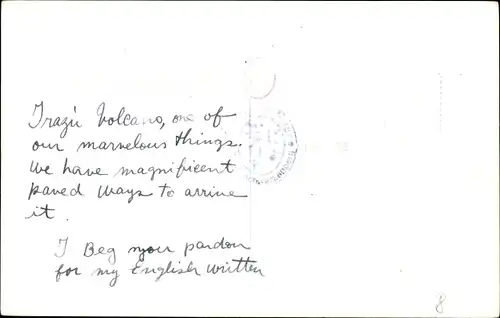 Irazú Volcano, one of
our marvelous things.
We have magnificent
paved ways to arrive
it.
I Beg your pardon
for my English written
8